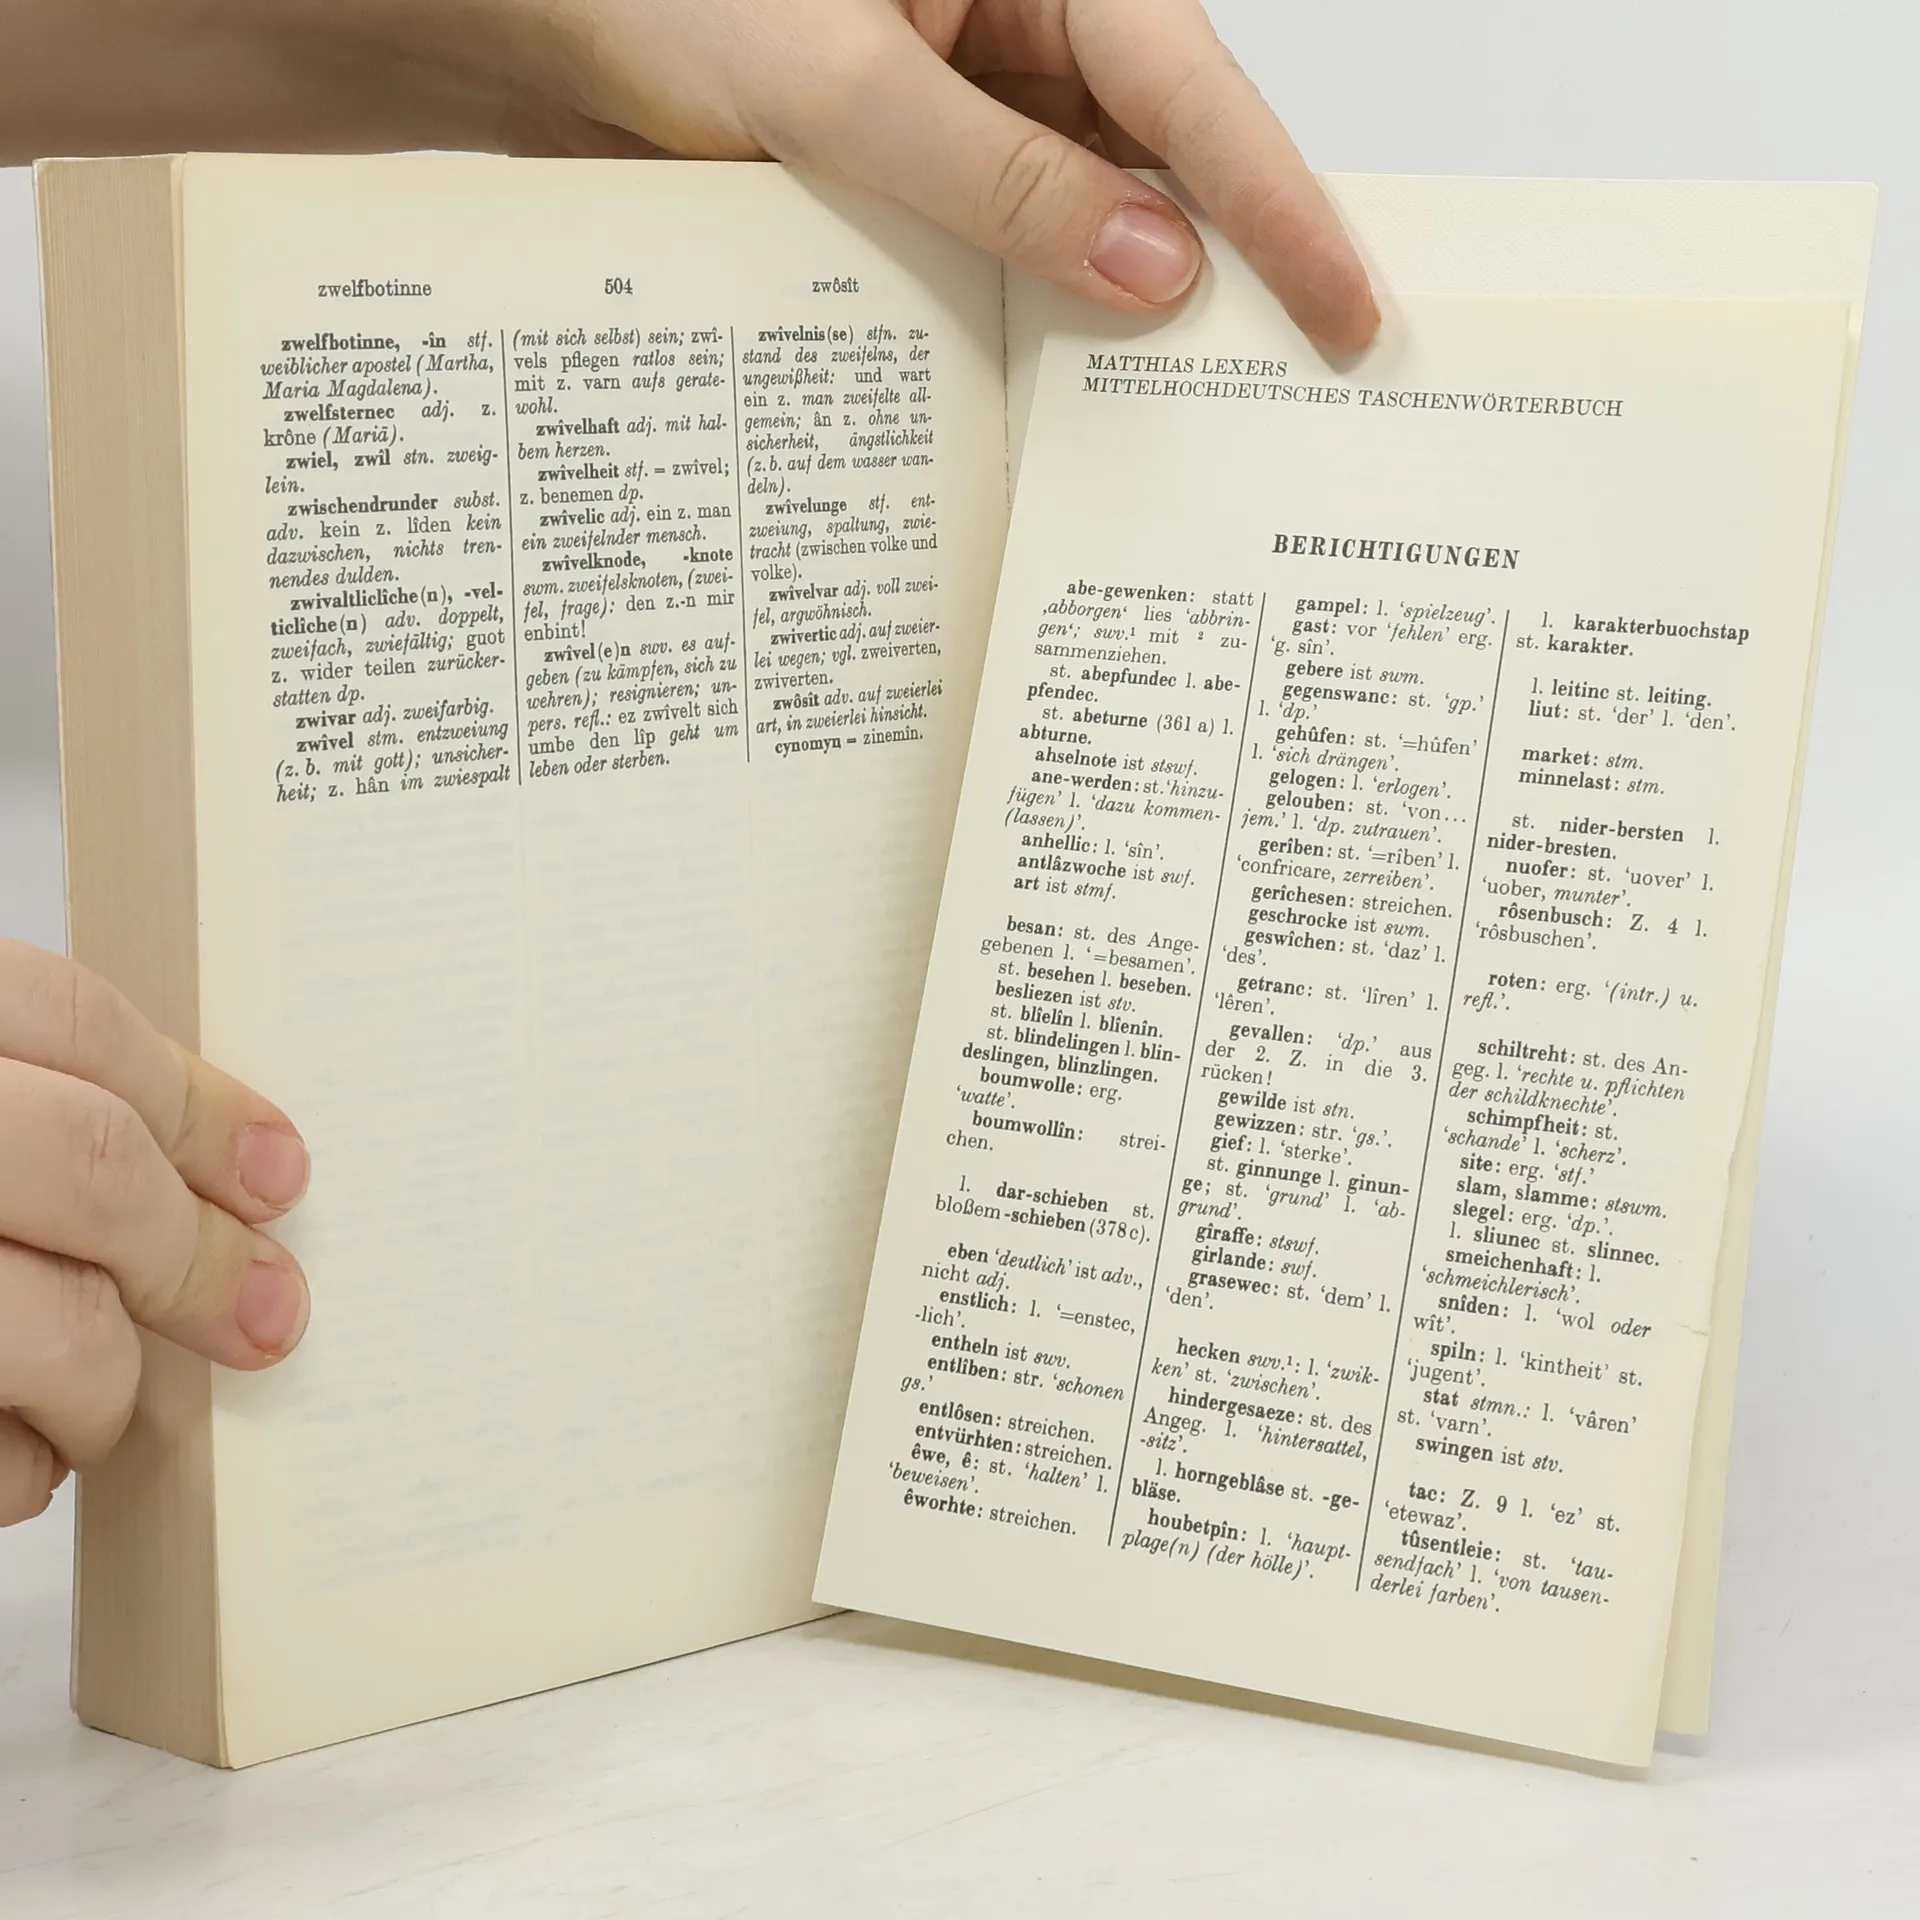 zwelfbotinne 504 zwôsît
zwelfbotinne, -în stf.
weiblicher apostel (Martha,
Maria Magdalena).
zwelfsternec adj. z.
krône (Mariä).
zwiel, zwil stn. zweig-
lein.
zwischendrunder subst.
adv. kein z. lîden kein
dazwischen, nichts tren-
nendes dulden.
zwivaltlicliche(n), -vel-
ticlîche(n) adv. doppelt,
zweifach, zwiefältig; guot
z. wider teilen zurücker-
statten dp.
zwivar adj. zweifarbig.
zwîvel stm. entzweiung
(z. b. mit gott); unsicher-
heit; z. hân im zwiespalt
(mit sich selbst) sein; zwî-
vels pflegen ratlos sein;
mit z. varn aufs gerate-
wohl.
zwîvelhaft adj. mit hal-
bem herzen.
zwîvelheit stf. = zwîvel;
z. benemen dp.
zwîvelic adj. ein z. man
ein zweifelnder mensch.
zwîvelknode, -knote
swm. zweifelsknoten, (zwei-
fel, frage): den z.-n mir
enbint!
zwîvel(e)n swv. es auf-
geben (zu kämpfen, sich zu
wehren); resignieren; un-
pers. refl.: ez zwîvelt sich
umbe den lîp geht um
leben oder sterben.
zwîvelnis(se) stfn. zu-
stand des zweifelns, der
ungewißheit: und wart
ein z. man zweifelte all-
gemein; ân z. ohne un-
sicherheit, ängstlichkeit
(z. b. auf dem wasser wan-
deln).
zwîvelunge stf. ent-
zweiung, spaltung, zwie-
tracht (zwischen volke und
volke).
zwîvelvar adj. voll zwei-
fel, argwöhnisch.
zwivertic adj. auf zweier-
lei wegen; vgl. zweiverten,
zwiverten.
zwôsît adv. auf zweierlei
art, in zweierlei hinsicht.
cynomyn = zinemîn.
MATTHIAS LEXERS
MITTELHOCHDEUTSCHES TASCHENWÖRTERBUCH
BERICHTIGUNGEN
abe-gewenken: statt
‚abborgen‘ lies ‘abbrin-
gen‘; swv.¹ mit ² zu-
sammenziehen.
st. abepfundec l. abe-
pfendec.
st. abeturne (361 a) l.
abturne.
ahselnote ist stswf.
ane-werden: st. ‘hinzu-
fügen’ l. ‘dazu kommen-
(lassen)’.
anhellic: l. ‘sîn’.
antlâzwoche ist swf.
art ist stmf.
besan: st. des Ange-
gebenen l. ‘=besamen’.
st. besehen l. beseben.
besliezen ist stv.
st. blîelîn l. blîenîn.
st. blindelingen l. blin-
deslingen, blinzlingen.
boumwolle: erg.
‘watte’.
boumwollîn: strei-
chen.
l. dar-schieben st.
bloßem -schieben (378 c).
eben ‘deutlich’ ist adv.,
nicht adj.
enstlich: l. ‘=enstec,
-lich’.
entheln ist swv.
entlîben: str. ‘schonen
gs.’
entlôsen: streichen.
entvürhten: streichen.
êwe, ê: st. ‘halten’ l.
‘beweisen’.
êworhte: streichen.
gampel: l. ‘spielzeug’.
gast: vor ‘fehlen’ erg.
‘g. sîn’.
gebere ist swm.
gegenswanc: st. ‘gp.’
l. ‘dp.’
gehûfen: st. ‘=hûfen’
l. ‘sich drängen’.
gelogen: l. ‘erlogen’.
gelouben: st. ‘von...
jem.’ l. ‘dp. zutrauen’.
gerîben: st. ‘=rîben’ l.
‘confricare, zerreiben’.
gerîchesen: streichen.
geschrocke ist swm.
geswîchen: st. ‘daz’ l.
‘des’.
getranc: st. ‘lîren’ l.
‘lêren’.
gevallen: ‘dp.’ aus
der 2. Z. in die 3.
rücken!
gewilde ist stn.
gewizzen: str. ‘gs.’.
gief: l. ‘sterke’.
st. ginnunge l. ginun-
ge; st. ‘grund’ l. ‘ab-
grund’.
gîraffe: stswf.
girlande: swf.
grasewec: st. ‘dem’ l.
‘den’.
hecken swv.¹: l. ‘zwik-
ken’ st. ‘zwischen’.
hindergesaeze: st. des
Angeg. l. ‘hintersattel,
-sitz’.
l. horngeblâse st. -ge-
bläse.
houbetpîn: l. ‘haupt-
plage(n) (der hölle)’.
l. karakterbuochstap
st. karakter.
l. leitinc st. leiting.
liut: st. ‘der’ l. ‘den’.
market: stm.
minnelast: stm.
st. nider-bersten l.
nider-bresten.
nuofer: st. ‘uover’ l.
‘uober, munter’.
rôsenbusch: Z. 4 l.
‘rôsbuschen’.
roten: erg. ‘(intr.) u.
refl.’.
schiltreht: st. des An-
geg. l. ‘rechte u. pflichten
der schildknechte’.
schimpfheit: st.
‘schande’ l. ‘scherz’.
site: erg. ‘stf.’
slam, slamme: stswm.
slegel: erg. ‘dp.’.
l. sliunec st. slinnec.
smeichenhaft: l.
‘schmeichlerisch’.
snîden: l. ‘wol oder
wît’.
spiln: l. ‘kintheit’ st.
‘jugent’.
stat stmn.: l. ‘vâren’
st. ‘varn’.
swingen ist stv.
tac: Z. 9 l. ‘ez’ st.
‘etewaz’.
tûsentleie: st. ‘tau-
sendfach’ l. ‘von tausen-
derlei farben’.